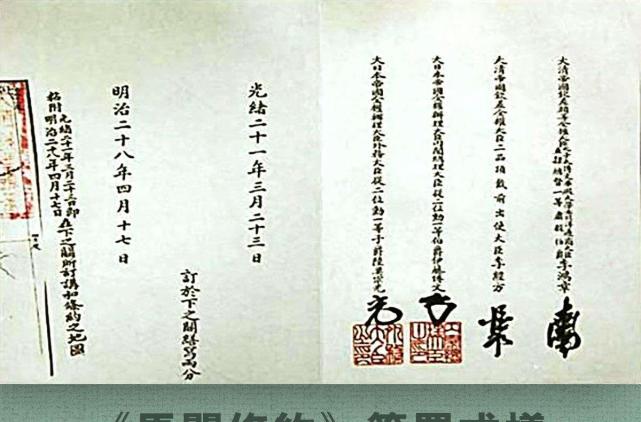 大清帝國欽差頭等全權大臣太子太傅文華殿大學士北洋通商大臣直隸總督一等肅毅伯爵李鴻章
大清帝國欽差全權大臣二品頂戴前出使大臣李經方
大日本帝國全權辦理大臣內閣總理大臣從二位勳一等伯爵伊藤博文
大日本帝國全權辦理大臣外務大臣從二位勳一等子爵陸奧宗光
光緒二十一年三月二十三日
訂於下之關繕寫兩分
明治二十八年四月十七日
粘附
光緒二十一年三月二十三日即
明治二十八年四月十七日
在下之關所訂講和條約之地圖
《馬關條約》簽署式樣